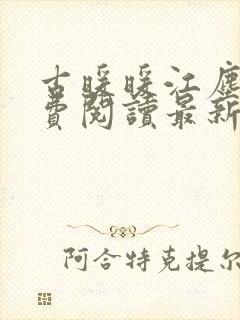 古暖暖江塵
費閱讀最新
阿合特克提尔